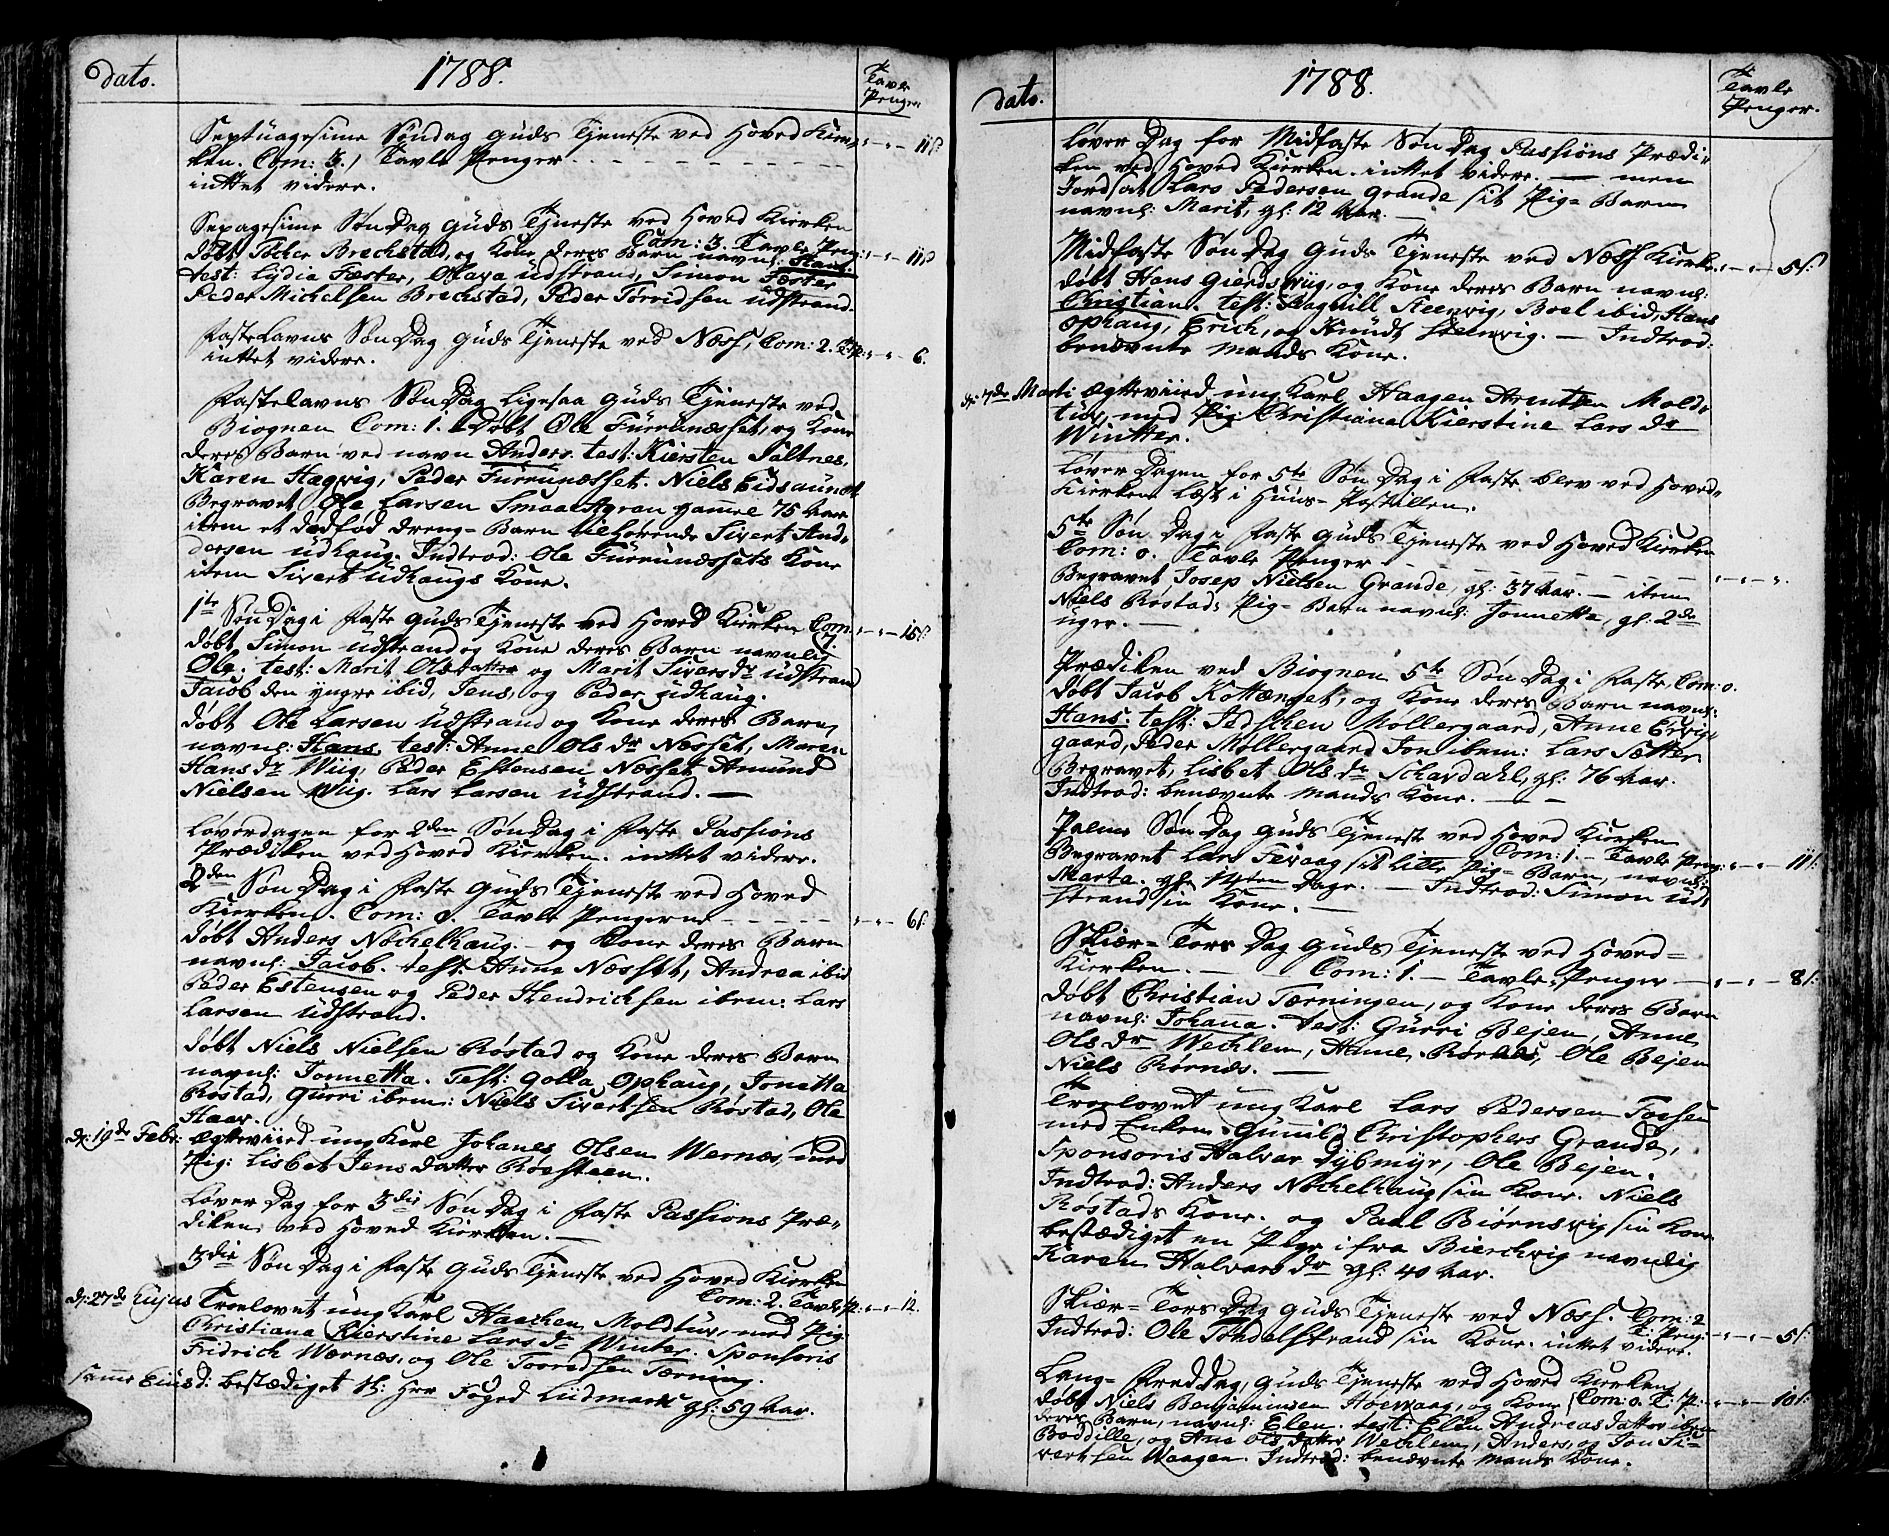 dato. 1788. Tavle
Penger
Septuagesime Søndag Guds Tjeneste ved Hoved Kier-
ken. Com: 3. / Tavle Penger - - - 11 s:
inttet videre.
Sexagesime SønDag Guds Tjeneste ved Hoved Kierken
Com: 3. Tavle Peng: - - 11 s
døbt Tøcher Brechstad, og Kone deres Barn navnl: Hans.
test: Lydia Fæster, Olava Udstrand, Simon Fæster
Peder Michelsen Brechstad, Peder Torridsen Udstrand.
Fastelavns SønDag Guds Tjeneste ved Næss, Com: 2. T: P: - - 6.
inttet videre.
Fastelavns SønDag Ligesaa Guds Tjeneste ved
Biognen Com: 1. Døbt Ole Fürrunæsset, og Kone
deres Barn ved navn Anders. test: Kiersten Saltnes,
Karen Hagvig, Peder Fürrunæsset. Niels Eidsaunet
Begravet Ole Larsen Smaa Agran gamel 75 Aar
item et dødfød Dreng-Barn tilhørende Sivert And-
dersen Udhaug. Indtrod: Ole Fürrunæssets Kone
item Sivert Udhaugs Kone.
1te SønDag i Faste Guds Tjeneste ved Hoved Kierken Com: - - 15 s:
7.
døbt Simon Udstrand og Kone deres Barn navnlig
Ole. test: Marit Olsdatter og Marit Siversdr Udstrand
Jacob den yngre ibid, Jens, og Peder Udhaug.
døbt Ole Larsen Udstrand og Kone deres Barn
navnl: Hans. test: Anne Olsdr Næsset, Maren
Hansdr Wiig, Peder Estensen Næsset Amund
Nielsen Wiig. Lars Larsen Udstrand. —
Løverdagen for 2den SønDag i Faste Passions
Prædiken ved Hoved Kierken. inttet videre.
2den SønDag i Faste Guds Tjeneste ved Hoved
Kierken. Com: 0. Tavle Pengerne - - - - - 6 s:
døbt Anders Nøchelhaug. - og Kone deres Barn
navnl: Jacob. test: Anne Næsset, Andrea ibid
Peder Estensen og Peder Hendrichsen ibem: Lars
Larsen Udstrand.
døbt Niels Nielsen Røstad og Kone deres Barn
navnl: Jonnetta. Test: Golla Ophaug, Jonetta
Røstad, Gurri ibem: Niels Sivertsen Røstad, Ole
Haar.
d: 19de Febr: Ægteviied ung Karl Johanes Olsen Wernæs, med
Pig: Lisbet Jensdatter Roesteen.
Løver Dag for 3die SønDag i Faste Passions Præ-
diken ved Hoved Kierken. —
3die SønDag i Faste Guds Tjeneste ved Hoved Kierken
Com: 2. Tavle P: - - 12.
d: 27de hujus Troelovet ung Karl Haachen Moldtuv, med Pig
Christiana Kierstine Larsdr Winter. Sponsoris
Fridrich Wærnæs, og Ole Tooredsen Tærning.
samme Eiusd: bestædiget Sl: Hrr Foged Liidmark gl: 59 Aar.
dato. 1788. Tavle
Penger.
Løver Dag for Midfaste SønDag Passions Prædi-
ken ved Hoved Kierken. inttet videre. — men
Jordsat Lars Pedersen Grande sit Pig-Barn
navnl: Marit, gl: 12 Aar. —
Midfaste SønDag Guds Tjeneste ved Næss Kierke. - - 5 s:
døbt Hans Gierdswiig, og Kone deres Barn navnl:
Christian. test: Steenvig, Boel ibid, Hans
Ophaug, Erich, og Knudt Steenvig. — Indtrod:
benævnte Mands Kone.
d: 7de Marti Ægteviied ung Karl Haagen Arentsen Mold-
tuv, med Pig: Christiana Kierstine Larsdr
Wintter.
Løver Dagen for 5te SønDag i Faste blev ved Hoved-
Kierken læst i Huus-Postillen.
5te SønDag i Faste Guds Tjeneste ved Hoved Kierken
Com: 0. Tavle Penger - - - - -
Begravet Josep Nielsen Grande, gl: 37 Aar. — item
Niels Røstads Pig-Barn navnl: Jonnetta, gl: 2de
uger. —
Prædiken ved Biognen 5te SønDag i Faste Com: 0.
døbt Jacob Kottænget, og Kone deres Barn navnl:
Hans. test: Møllergaard, Anne
gaard, Peder Møllergaard Jon ibem: Lars Sætter
Begravet, Lisbet Olsdr Schavdahl, gl: 76 Aar.
Indtrod: benævnte Mands Kone. —
Palme SønDag Guds Tjeneste ved Hoved Kierken
Com: 1. — Tavle Peng: - - 11 s:
Begravet Lars Fevaag sit Lille Pig-Barn, navnl:
Marta. gl: Dage. — Indtrod: Simon Ud-
strand sin Kone. —
Skiær-Tors Dag Guds Tjeneste ved Hoved-
Kierken. — Com: 1. — Tavle Penger - - 8 s:
døbt Christian Tærningen, og Kone deres Barn
navnl: Johana. test: Gurri Bejen, Anne
Olsdr Wechlem, Anne Rørnæs, Ole Bejen
Niels Rørnæs. —
Troelovet ung Karl Lars Pedersen
med Enken Gunild Christophers Grande,
Sponsoris Halvar Dybmyr, Ole Bejen.
Indtrod: Anders Nøchelhaug sin Kone. Niels
Røstads Kone. og Paul Biørnsvig sin Kone
bestædiget en Pige ifra Bierchvig navnlig
Karen Halvarsdr gl: 40 Aar.
Skiær-Tors Dag Guds Tjeneste ved Næss. Com: 2
T: Peng: - - 5 s:
Indtrod: Ole Tøndelstrand sin Kone. inttet videre.
Lang-Freddag, Guds Tjeneste ved Hoved Kierken
Com: 0. T: P: - - 10 s:
døbt Niels Benjaminsen Høevaag, og Kone
deres Barn, navnl: Elen. test: Elen Andreasdatter ibem
Boddille, og Ane Olsdatter Wechlem, Anders, og Jon Si-
vertsen Waagen. Indtrod: benævnte Mands Kone.